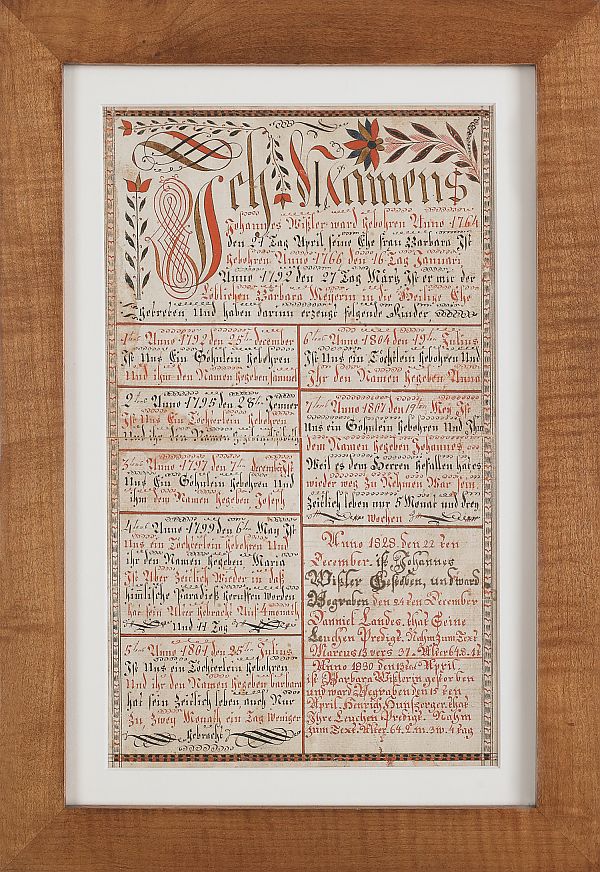 Ich Namens
Johannes Wißler ward Gebohren Anno 1764
den 21 Tag April seine Ehe frau Barbara Ist
Gebohren Anno 1766 den 16 Tag Januari
Anno 1792 den 27 Tag Martz Ist er mit der
Löblichen Barbara Meyerin in die Heilige Ehe
Gebreben Und haben darinn erzeugt folgende Kinder
1 Anno 1792 den 25ten december
Ist Uns Ein Söhnlein Gebohren
Und ihm den Namen Gegeben Samuel
2 Anno 1795 den 28ten Jenner
Ist Uns Ein Töchterlein Gebohren
Und ihr den Namen
3 Anno 1797 den 7ten december Ist
Uns Ein Söhnlein Gebohren Und
ihm dem Namen Gegeben Joseph
4 Anno 1799 den 6ten May Ist
Uns ein Töchterlein Gebohren Und
ihr den Namen Gegeben Maria
Ist Aber Zeitlich Wieder in daß
himlische Paradieß Geruffen worden
hat sein Alter Gebracht Auf 4 monath
Und 11 Tag
5 Anno 1801 den 25ten Julius
Ist Uns Ein Töchterlein Gebohren
Und ihr den Namen Gegeben barbara
hat sein Zeitlich leben auch Nur
Zu Zwey Monath ein Tag Weniger
Gebracht
6 Anno 1804 den 19ten Julius
Ist Uns ein Töchtlein Gebohren Und
Ihr den Namen Gegeben Anna
7 Anno 1807 den 19ten May Ist
Uns ein Söhnlein Gebohren Und Ihm
dem Namen Gegeben Johannes
Weil es dem Herren Gefallen hat es
wieder weg Zu Nehmen War sein
Zeitlich leben nur 5 Monat und drey
Wochen
Anno 1828 den 22 ten
December ist Johannes
Wißler Gestoben, und ward
Begraben den 24 ten December
Daniel Landes, that Seine
Leuchen Predigt. Nahm zum Text
Marcus 13 vers 37. Alter 64. 8.
Anno 1830 den 13ten April
ist Barbara Wislerin gestorben
und ward Begraben den 15 ten
April Henrich Hunßerger, that
Ihre Leuchen Predigt. Nahm
zum Text. Alter 64. 2. m. 3 w. 4 tag